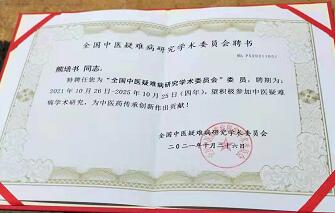 全国中医疑难病研究学术委员会聘书
熊培书 同志:
特聘任您为“全国中医疑难病研究学术委员会”委 员，聘期为:
2021年10月26日-2025年10月25日(四年)，望积极参加中医疑难
病学术研究，为中医药传承创新作出贡献!
全国中医疑难病研究学术委员会
二〇二一年十月二十六日